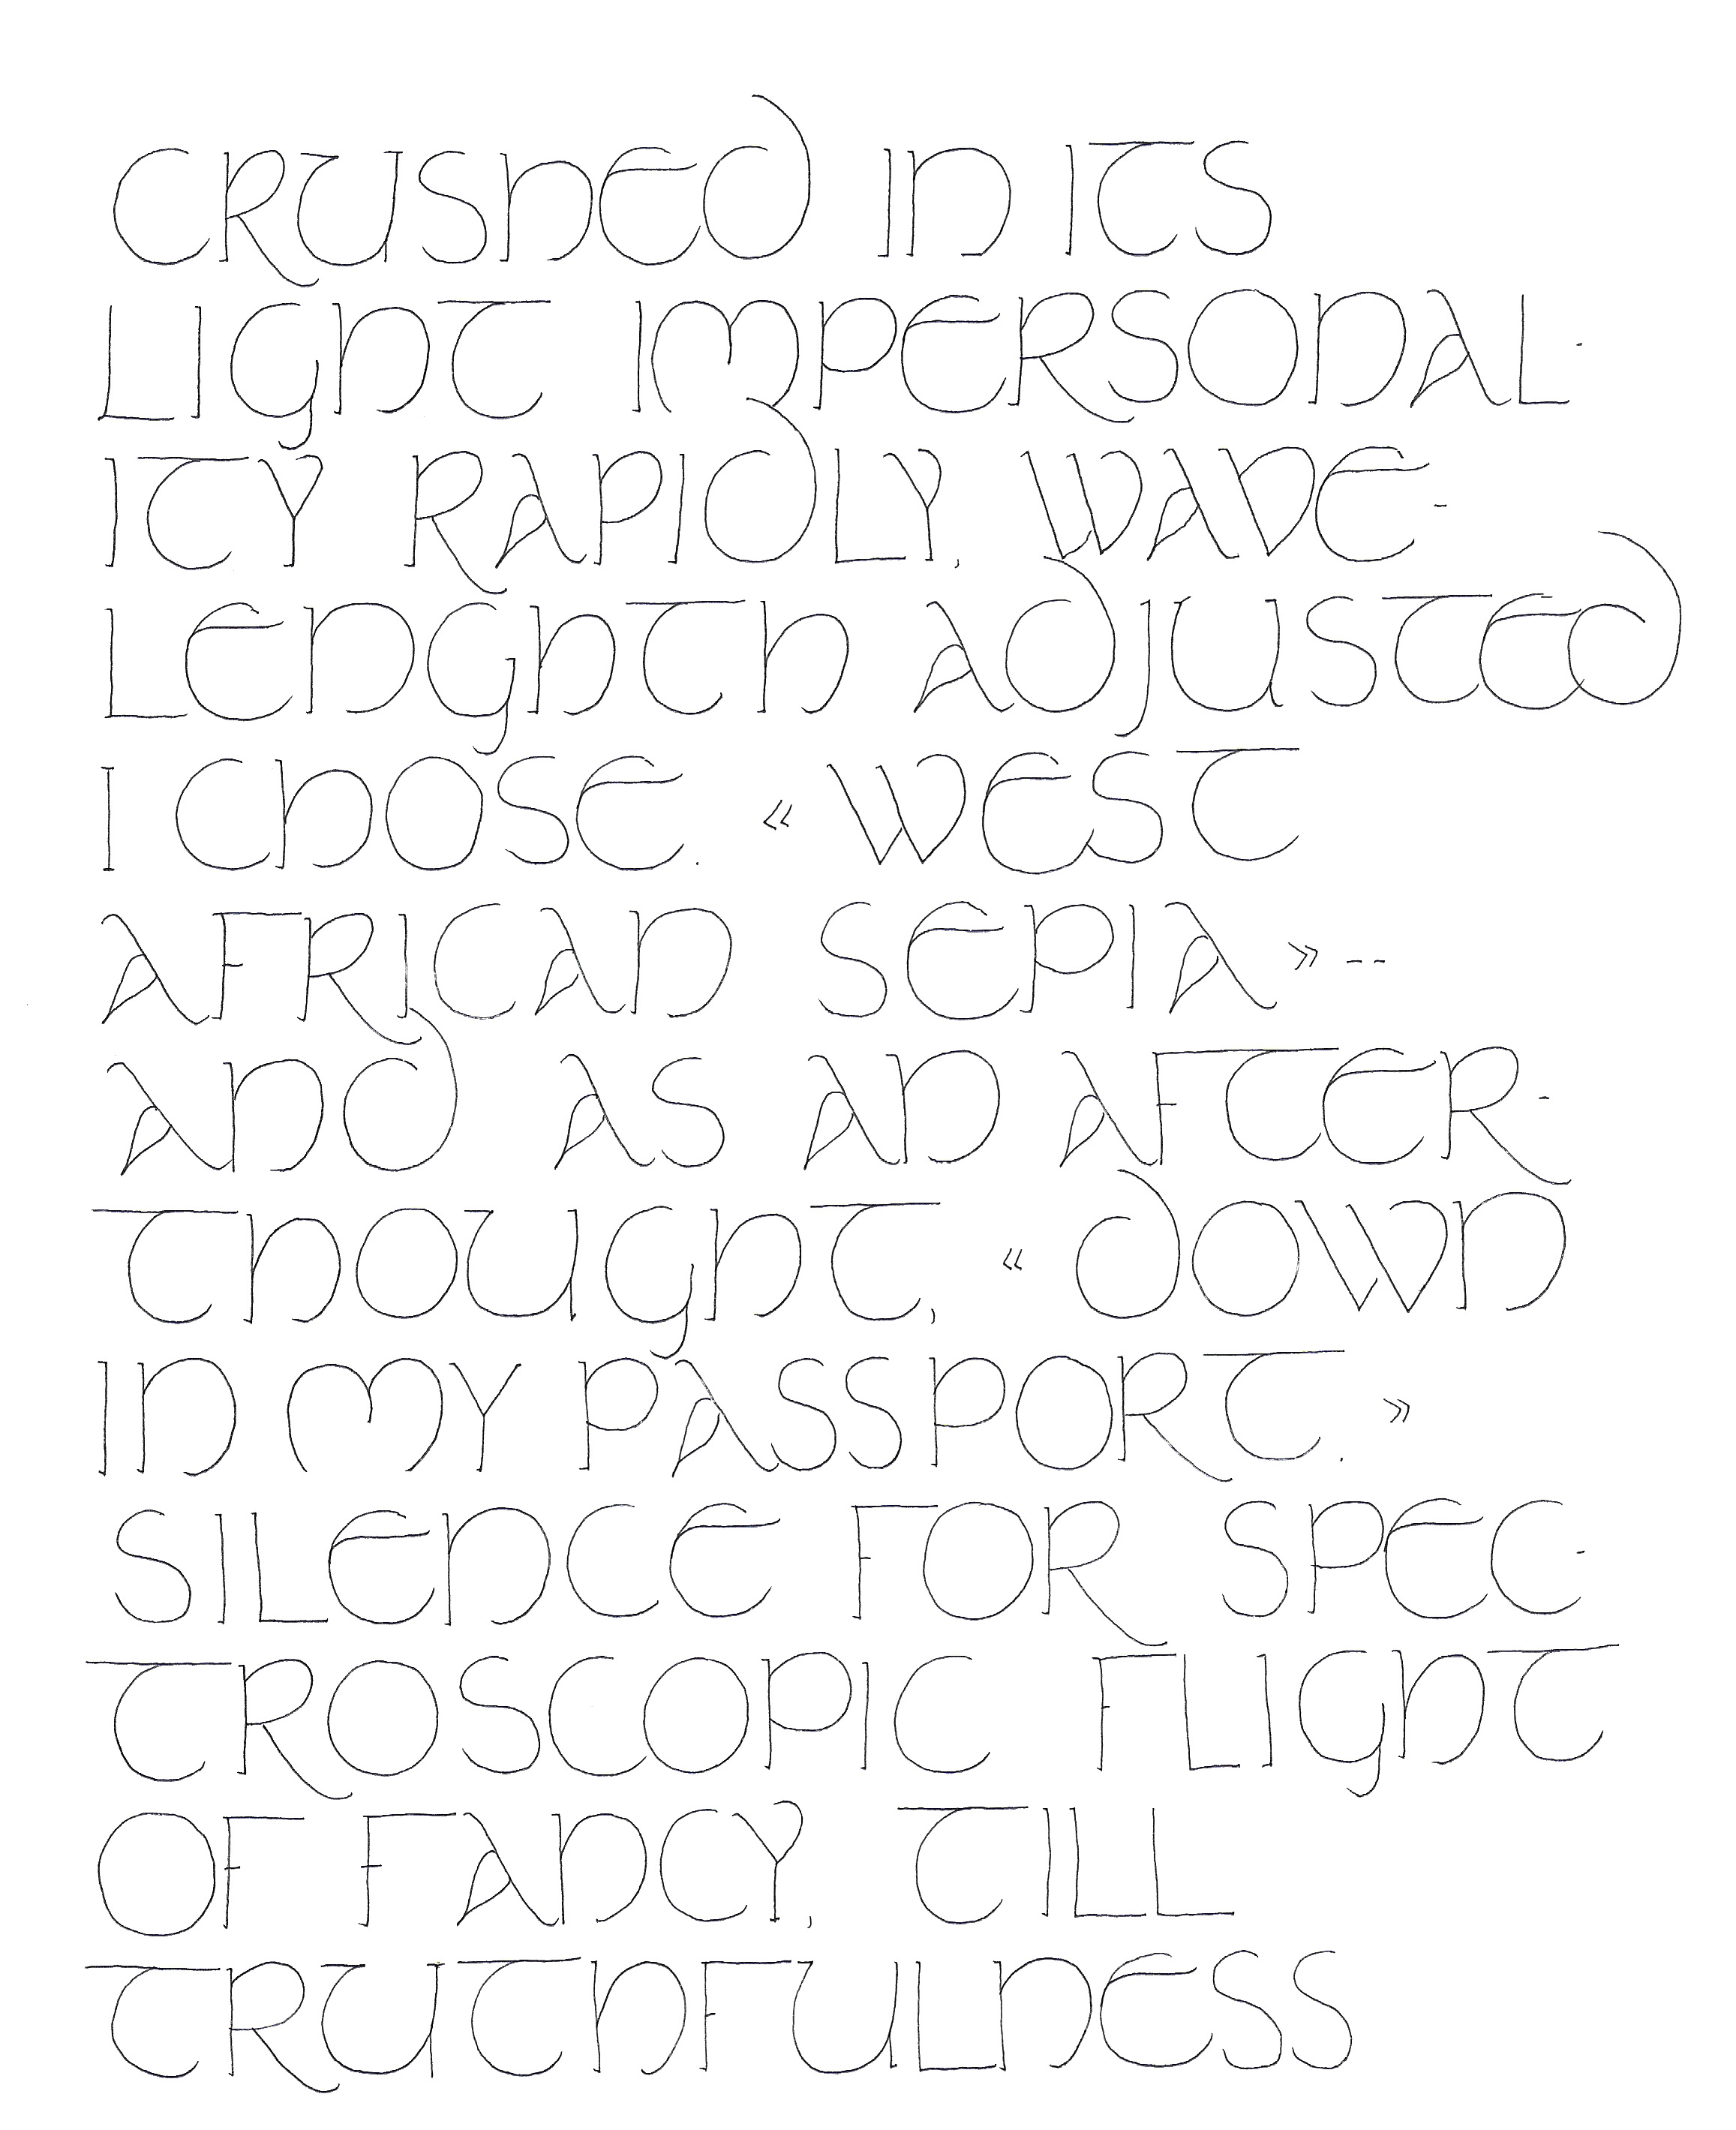 CRUSHED IN ITS
LIGHT IMPERSONAL-
ITY RAPIDLY, WAVE-
LENGHTH ADJUSTED
I CHOSE. « WEST
AFRICAN SEPIA » --
AND AS AN AFTER-
THOUGHT, « DOWN
IN MY PASSPORT. »
SILENCE FOR SPEC-
TROSCOPIC FLIGHT
OF FANCY, TILL
TRUTHFULNESS